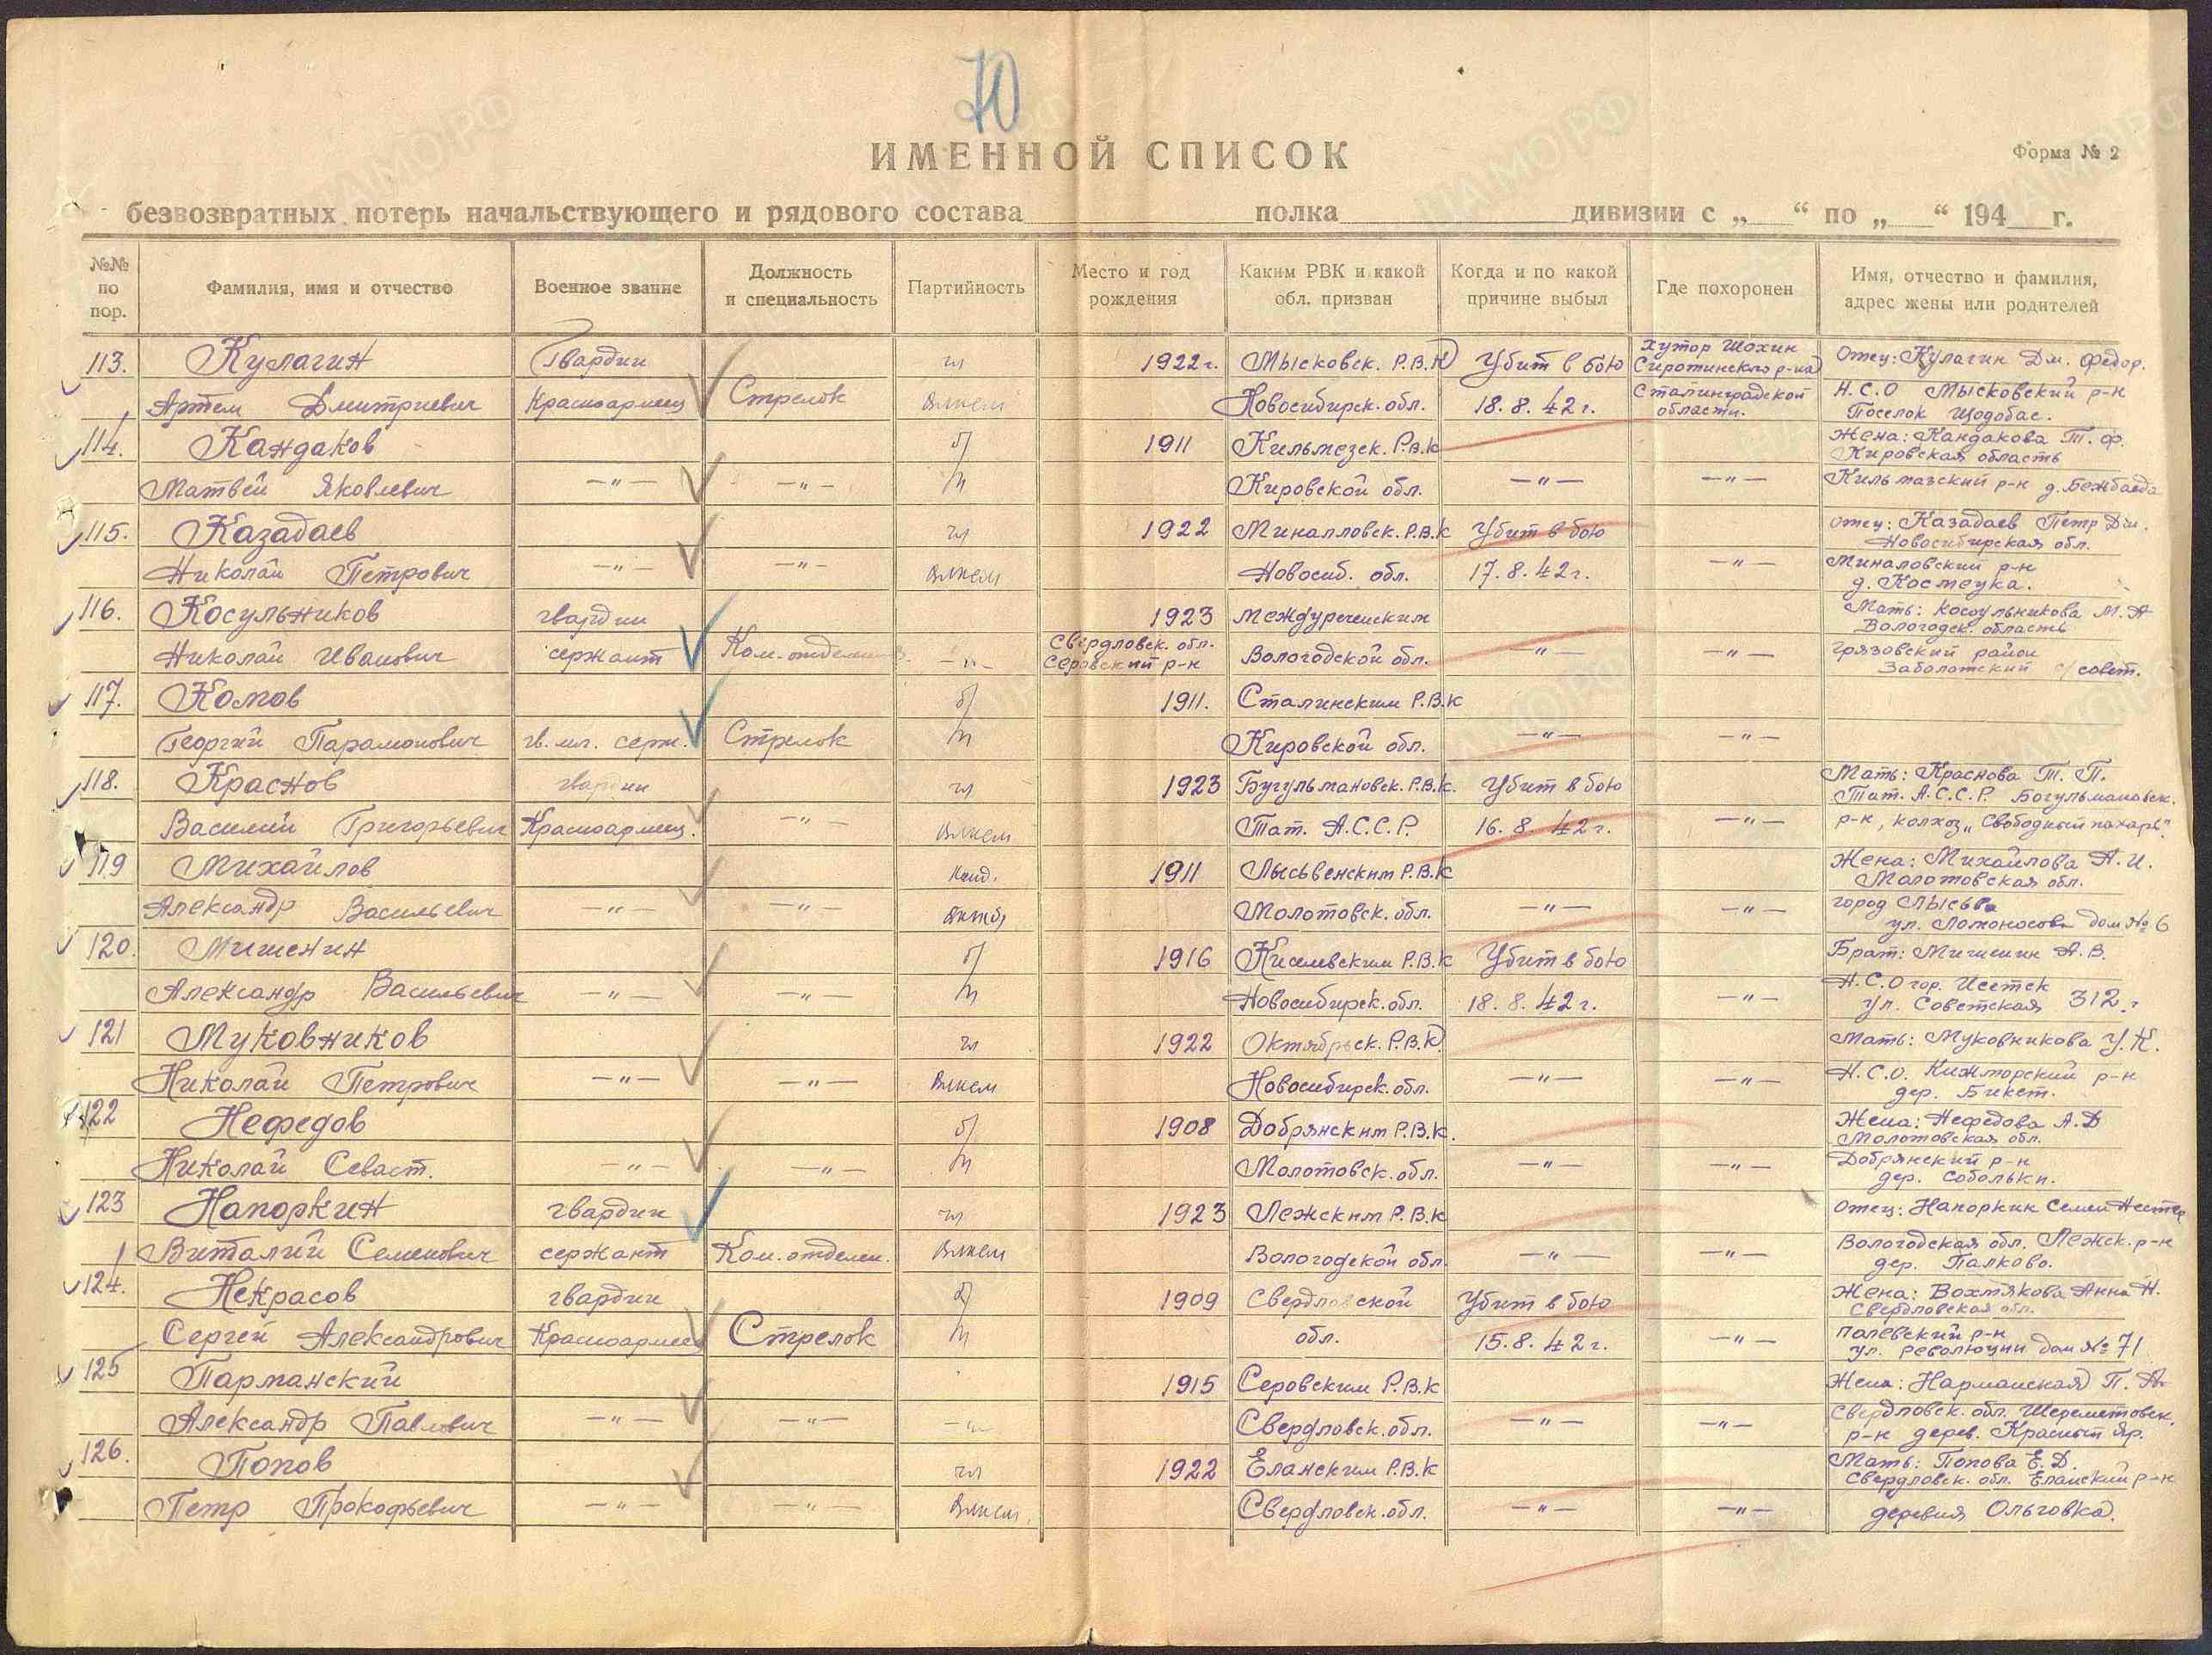 70
ИМЕННОЙ СПИСОК
Форма № 2
безвозвратных потерь начальствующего и рядового состава полка дивизии с „ “ по „ “ 194 г.
№№ по пор.
Фамилия, имя и отчество
Военное звание
Должность и специальность
Партийность
Место и год рождения
Каким РВК и какой обл. призван
Когда и по какой причине выбыл
Где похоронен
Имя, отчество и фамилия, адрес жены или родителей
113. Кулагин гвардии чл 1922 г. Мысковск. Р.В.К Убит в бою хутор Шохин Сиротинского р-на Отец: Кулагин Дм. Федор.
Артем Дмитриевич Красноармеец Стрелок Влксм Новосибирск. обл. 18.8.42 г. Сталинградской области. Н.С.О Мысковский р-н
Поселок
114. Кандаков б/ 1911 Кильмезск. Р.В.К Жена: Кандакова Т. Ф.
Кировская область
Матвей Яковлевич —"— —"— п Кировской обл. —"— —"— Кильмазский р-н д.
115. Казадаев чл 1922 Миналловск. Р.В.К Убит в бою Отец: Казадаев Петр Дм.
Новосибирская обл.
Николай Петрович —"— —"— Влксм Новосиб. обл. 17.8.42 г. —"— Миналовский р-н
д. Костеука.
116. Косульников гвардии 1923 Междуреченским Мать: Косульникова М. А
Вологодск. область
Николай Иванович сержант Ком. отделен —"— Свердловск. обл. Серовский р-н Вологодской обл. —"— —"— Грязовский район
Заболотский с/совет.
117. Комов б/ 1911. Сталинским Р.В.К
Георгий Парамонович гв. мл. серж. Стрелок п Кировской обл. —"— —"—
118. Краснов гвардии чл 1923 Бугульмановск. Р.В.К. Убит в бою Мать: Краснова Т. П.
Тат. А.С.С.Р. Богульмановск.
Василий Григорьевич Красноармеец. —"— Влксм Тат. А.С.С.Р. 16.8.42 г. —"— р-н, колхоз „Свободный пахарь“.
119 Михайлов Канд. 1911 Лысьвенским Р.В.К Жена: Михайлова А. И.
Молотовская обл.
Александр Васильевич —"— —"— Вкпб) Молотовск. обл. —"— —"— город Лысьва
ул. Ломоносова дом № 6
120. Мишенин б/ 1916 Киселевским Р.В.К Убит в бою Брат: Мишенин А. В.
Александр Васильевич —"— —"— п Новосибирск. обл. 18.8.42 г. —"— Н.С.О гор.
ул. Советская 312.
121 Муковников чл 1922 Октябрьск. Р.В.К. Мать: Муковникова У. К.
Николай Петрович —"— —"— Влксм Новосибирск. обл. —"— —"— Н.С.О. Кижморский р-н
дер. Бикет.
122 Нефедов б/ 1908 Добрянским Р.В.К. Жена: Нефедова А. Д
Молотовская обл.
Николай Севаст. —"— —"— п Молотовск. обл. —"— —"— Добрянский р-н
дер. Собольки.
123 Напоркин гвардии чл 1923 Лежским Р.В.К Отец: Напоркин Семен
Виталий Семенович сержант Ком. отделен. Влксм Вологодской обл —"— —"— Вологодская обл. Лежск. р-н
дер. Палково.
124. Некрасов гвардии б/ 1909 Свердловской Убит в бою Жена: Вохтякова Анна Н.
Свердловская обл.
Сергей Александрович Красноармеец Стрелок п обл. 15.8.42 г. —"— Палевский р-н
ул. Революции дом № 71
125 Парманский 1915 Серовским Р.В.К Жена: Нарманская П. А.
Александр Павлович —"— —"— —"— Свердловск. обл. —"— —"— Свердловск. обл. Шереметовск.
р-н дерев. Красный Яр.
126. Попов чл 1922 Еланским Р.В.К Мать: Попова Е. Д.
Свердловск. обл. Еланский р-н
Петр Прокофьевич —"— —"— Влксм Свердловск. обл. —"— —"— деревня Ольговка.